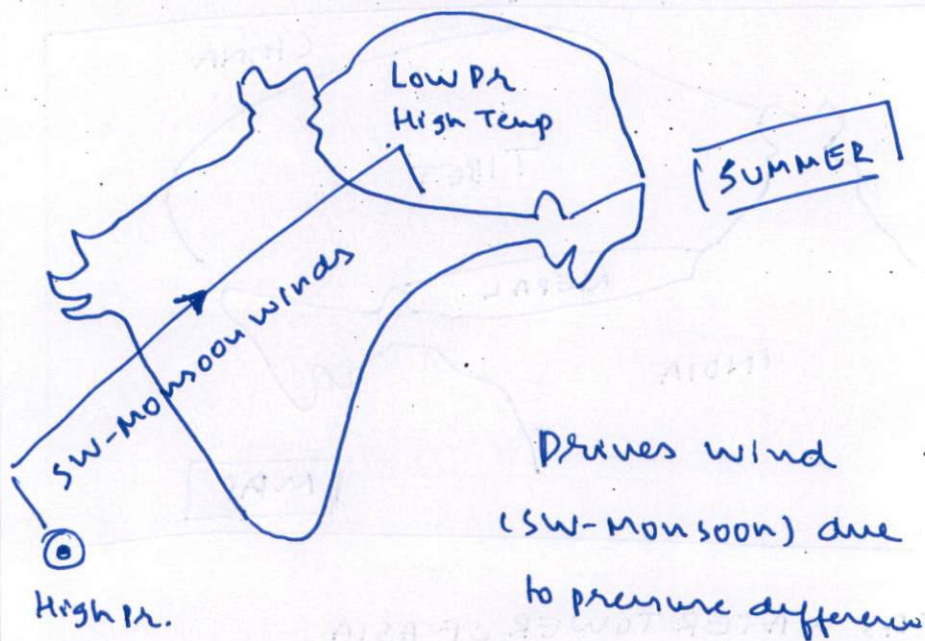 Low Pr
High Temp
SUMMER
SW-Monsoon winds
High Pr.
Drives wind
(SW-Monsoon) due
to pressure difference
CHINA
TIBET
NEPAL
INDIA